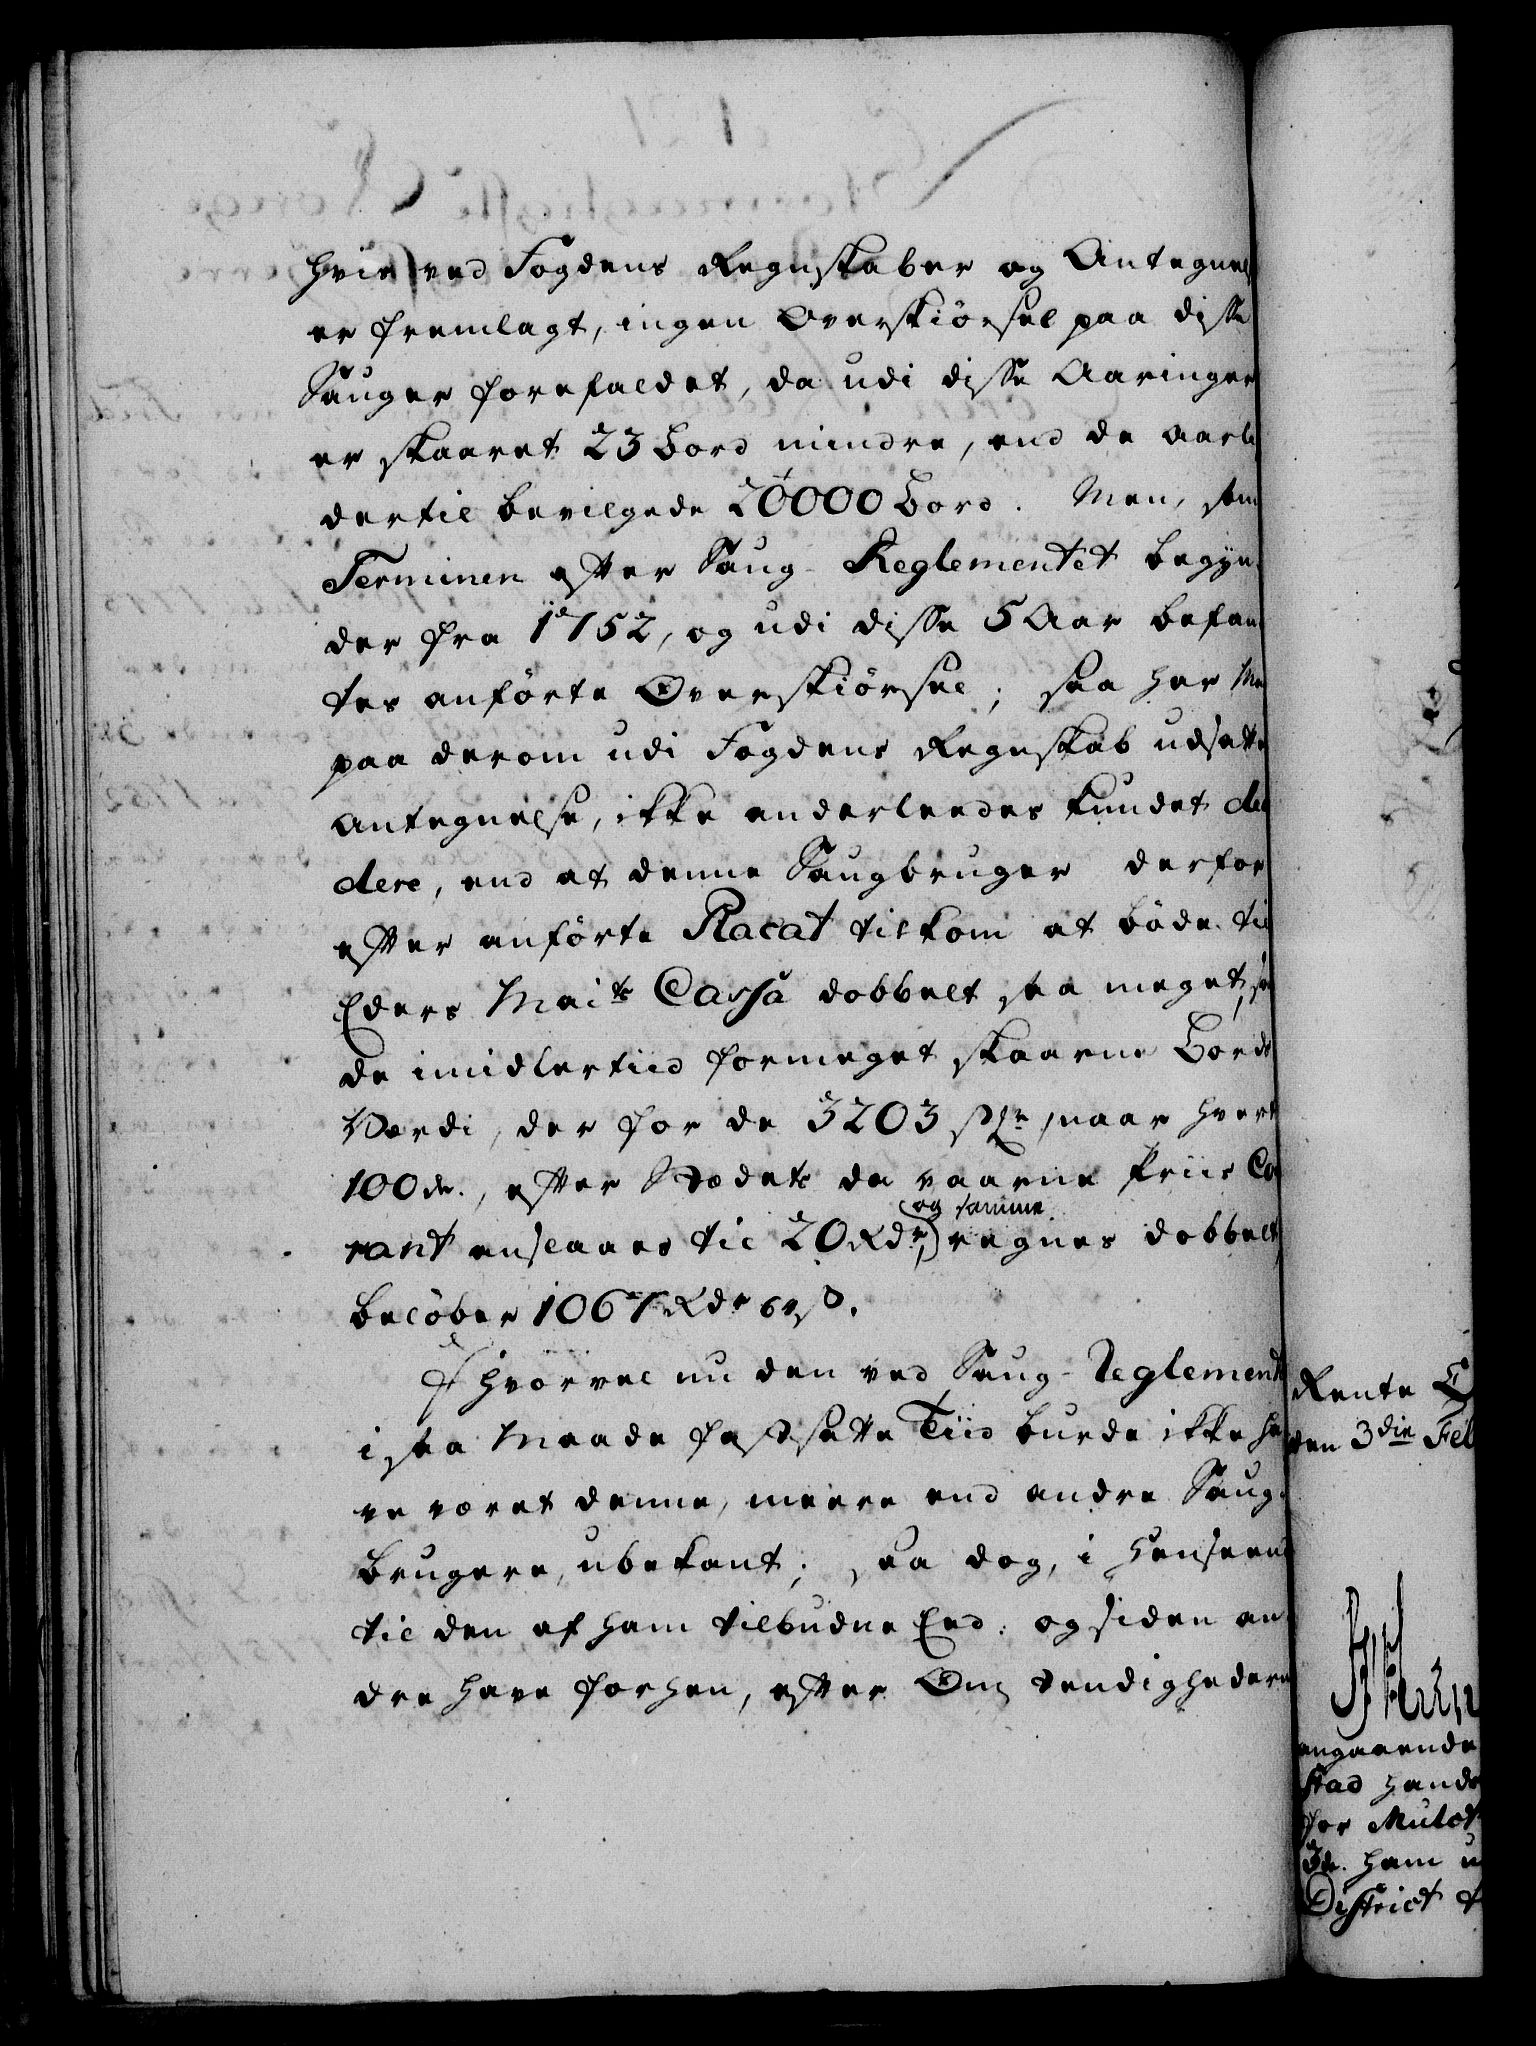 hvis ved Fogdens Regnskaber og Antegnels
er fremlagt, ingen Overskiörsel paa disse
Sauger forefaldet, da udi disse Aaringer
er skaaret 23 Bord mindre, end de aarli
dertil bevilgede 20000 Bord. Men, som
Terminen efter Saug-Reglementet begyn-
der fra 1752, og udi disse 5 Aar befan-
tes anförte Overskiörsel; saa har Ma
paa derom udi Fogdens Regnskab udsatte
Antegnelse, ikke anderleedes kundet deci-
dere, end at denne Saugbruger derfor
efter anförte Placat tilkom at böde til
Eders Maits Cassa dobbelt saa meget, som
de imidlertiid formeget skaarne Bords
Værdi, der for de 3203 st, naar hvert
100de, efter Stedets da værende Priis Co
rant ansaaes til 20 Rdr, (og samme) regnes dobbelt
belöber 1067 Rdr 64 s.
Ihvorvel nu den ved Saug-Reglement
i saa Maade fastsatte Tiid burde ikke ha
ve været denne, meere end andre Saug-
brugere, ubekant; saa dog, i Henseend
til den af ham tilbudne Eed: og siden an-
dre have forhen, efter Omstendighederne
Rente C
den 3die Feb
angaaende
stad hands
for Mulct
de ham u
District t